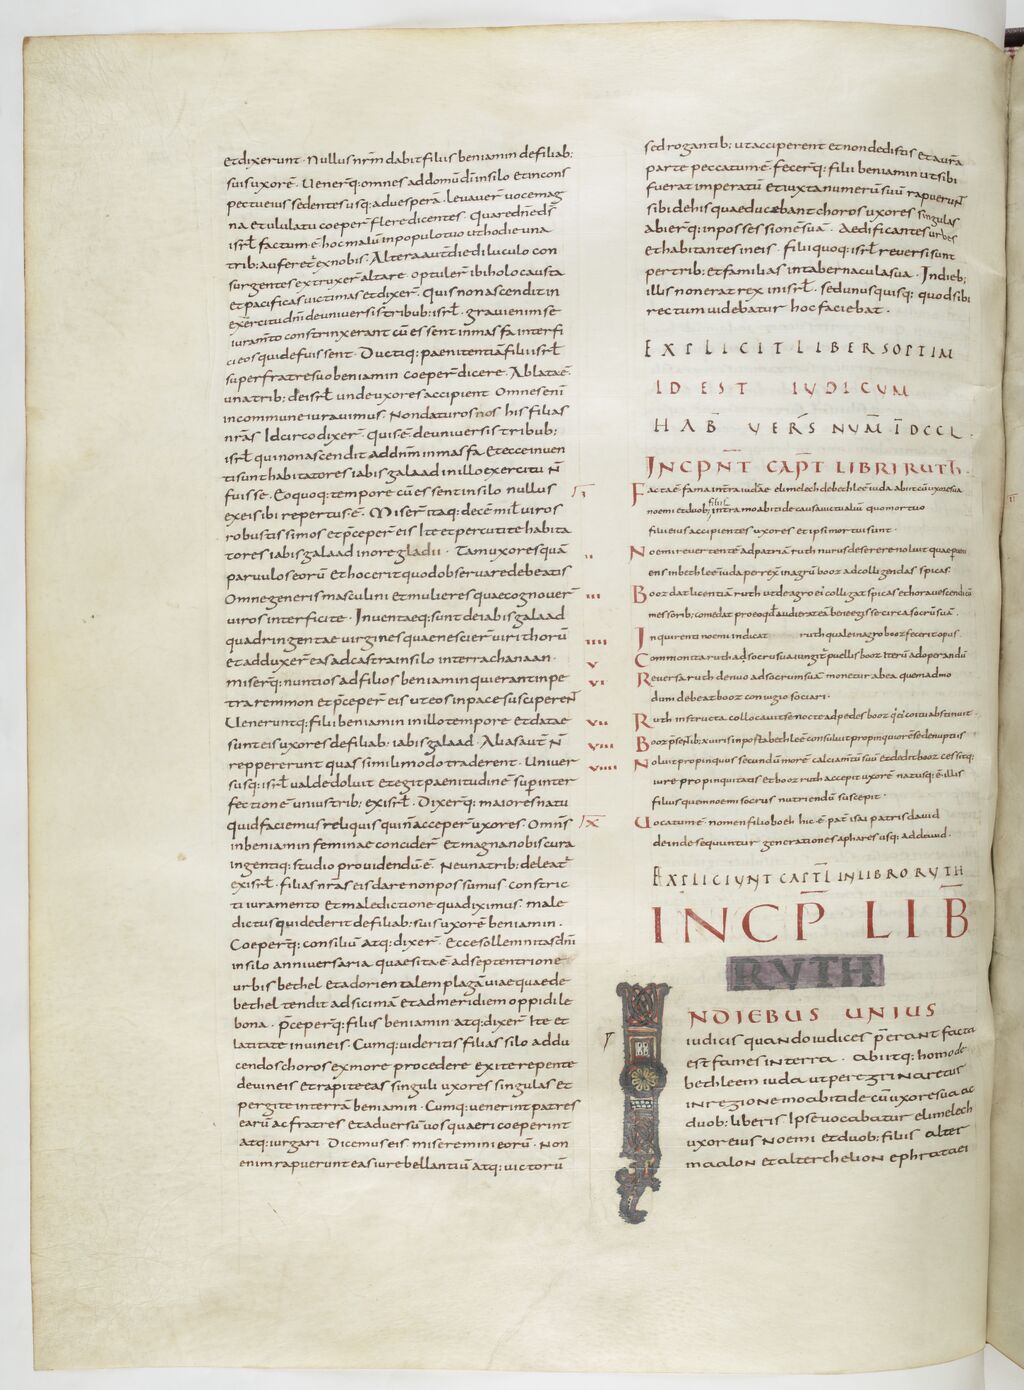 et dixerunt. Nullus nrm̄ dabit filiis beniamin de filiab;
suis uxorē. Uenerq; omnes ad domum dī in silo et in cons
pectu eius sedentes usq; ad uespera. leuauer uocem ag
na et ululatu coeper flere dicentes. Quare dne ds̄
isrl̄ factum ē hoc malū in populo tuo ut hodie una
trib; auferet ex nobis. Altera aut die diluculo con
surgentes extruxer altare. optuler ibi holocausta
et pacificas uictimas et dixer. Quis non ascendit in
exercitu dnī de uniuersis tribub; isrl̄. graui enim se
iuram̄to constrinxerant cū essent in masfa interfi
ci eos qui defuissent. Ductiq; paenitentia filii isrl̄
super fratre suo beniamin coeper dicere. Ablata ē
una trib; de isrl̄ unde uxores accipient. Omnes enī
in commune iurauimus. Non daturos nos his filias
nrās. Idcirco dixer. Quis ē de uniuersis tribub;
isrl̄ qui non ascendit ad dnm̄ in masfa. Et ecce inuen
ti sunt habitatores iabis galaad in illo exercitu n̄
fuisse. Eo quoq; tempore cū essent in silo nullus
ex eis ibi repertus ē. Miser itaq; decē mil̄ uiros
robustissimos et p̄ceper eis. Ite et percutite habita
tores iabis galaad in ore gladii. Tam uxores quā
paruulos eorū. Et hoc erit quod obseruare debeatis
Omne generis masculini et mulieres quae cognouer
uiros interficite. Inuentaeq; sunt de iabis galaad
quadringentae uirgines quae nescier uiri thorū
et adduxer eas ad castra in silo in terra chanaan.
miserq; nuntios ad filios beniamin qui erant in pe
tra remmon et p̄ceper eis ut eos in pace susciperent
Ueneruntq; filii beniamin in illo tempore et datae
sunt eis uxores de filiab; iabis galaad. Alias aut n̄
reppererunt quas simili modo traderent. Uniuer
susq; isrl̄ ualde doluit et egit paenitudinē sup inter
fectione unius trib; ex isrl̄. Dixerq; maiores natu
quid faciemus reliquis qui n̄ acceper uxores. Omn̄s
in beniamin feminae concider et magna nobis cura
ingentiq; studio prouidendū ē. Ne una trib; deleat
ex isrl̄. filias nrās eis dare non possumus. constric
ti iuramento et maledictione qua diximus. male
dictus qui dederit de filiab; suis uxorē beniamin.
Coeperq; consiliū atq; dixer. Ecce sollemnitas dnī
in silo anniuersaria quae sita ē ad septentrione
urbis bethel et ad orientalem plagā uiae quae de
bethel tendit ad sicima et ad meridiem oppidi le
bona. p̄ceperq; filiis beniamin atq; dixer. Ite et
latitate in uineis. Cumq; uideritis filias silo addu
cendos choros ex more procedere exite repente
de uineis et rapite eas singuli uxores singulas et
pergite in terrā beniamin. Cumq; uenerint patres
earū ac fratres et aduersū uos quaeri coeperint
atq; iurgari. Dicemus eis. miseremini eorū. Non
enim rapuerunt eas iure bellantiū atq; uictorū
sed rogantib; ut acciperent et non dedistis et a ura
parte peccatum ē. fecerq; filii beniamin ut sibi
fuerat imperatū et iuxta numerū suū rapuerunt
sibi de his quae ducebant choros uxores singulas
abierq; in possessione sua. Aedificantes urbes
et habitantes in eis. filii quoq; isrl̄ reuersi sunt
per trib; et familias in tabernacula sua. In dieb;
illis non erat rex in isrl̄. sed unusquisq; quod sibi
rectum uidebatur hoc faciebat.
EXPLICIT LIBER SOPTIM
ID EST IUDICUM
HAB̄ VERS̄ NVM̄ ĪDCCL.
INCPNT̄ CAPT̄ LIBRI RUTH.
I Facta ē fama in terra iudae elimelech de bethleē iuda abiit cū uxore sua
noemi et duob; filiis intra moabitide causa uictualiū quo mortuo
filii eius accipientes uxores et ipsi mortui sunt.
II Noemi reuertente ad patriā ruth nurus deserere noluit quae per
ens in bethleē iuda perrex in agrū booz ad colligendas spicas.
III Booz dat licentiā ruth ut de agro ei colligat spicas et hora uescendi cū
messorib; comedat pro eo qd audierat eā bene egisse circa socrū suā
IIII Inquirenti noemi indicat ruth quale in agro booz fecerit opus.
V Commonita ruth ad socru sua iungit puellis booz. Iterū ad operandū
VI Reuersa ruth denuo ad socrum suā monetur ab ea quemadmo
dum debeat booz coniugio sociari.
VII Ruth instructa collocauit se nocte ad pedes booz q ei coitu abstinuit.
VIII Booz p̄sentib; x uiris in porta bethleē consuluit propinquiorē se de nuptiis
VIIII Noluit propinquus secundū morē calciamtū suū et dedit booz cessitq;
iure propinquitatis et booz ruth accepit uxorē natusq; ē illis
filius quem noemi socrus nutriendū suscepit.
X Uocatum ē nomen filio boeh hic ē pat̄ isai patris dauid
deinde sequuntur generationes a phares usq; ad dauid.
EXPLICIUNT CAPT̄L IN LIBRO RUTH
INCP̄ LIB̄
RVTH
I IN DIEBUS UNIUS
iudicis quando iudices p̄erant facta
est fames in terra. abiitq; homo de
bethleem iuda ut peregrinaretur
in regione moabitide cū uxore sua ac
duob; liberis. Ipse uocabatur elimelech
uxor eius Noemi et duob; filiis alter
maalon et alter chelion ephrataei